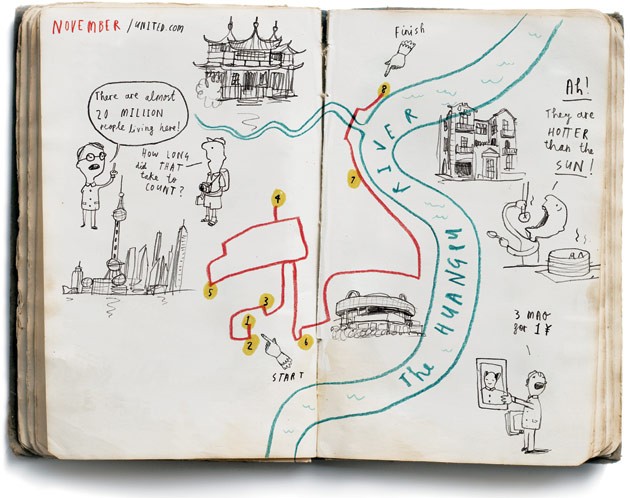 NOVEMBER / UNITED.COM
There are almost
20 MILLION
people living here!
HOW LONG
did THAT
take to
COUNT?
4
5
3
1
2
START
Finish
8
RIVER
7
6
The HUANGPU
Ah!
They are
HOTTER
than the
SUN!
3 MAO
for 1 ¥